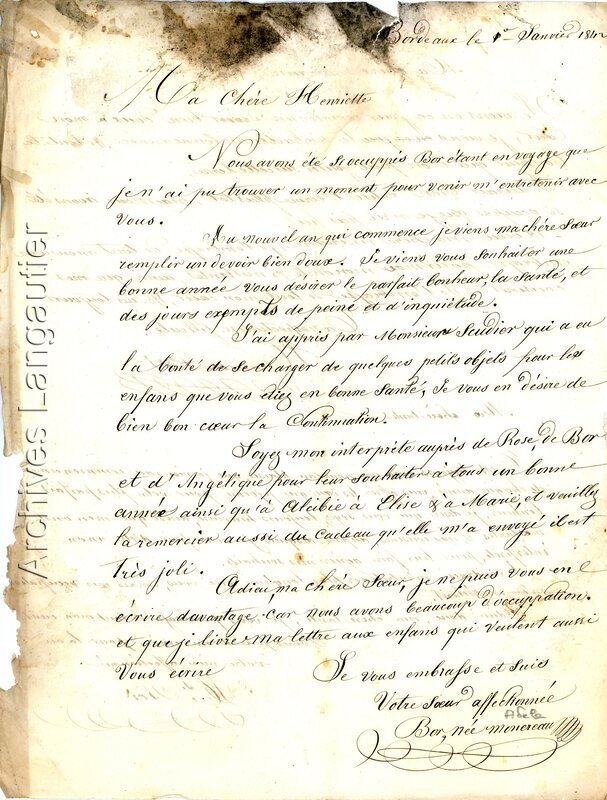 Bordeaux le 1er Janvier 1842
Ma chère Henriette
Nous avons été si occuppés Bor étant en voyage que
je n'ai pu trouver un moment pour venir m'entretenir avec
vous.
Au nouvel an qui commence je viens ma chère Sœur
remplir un devoir bien doux. Je viens vous souhaiter une
bonne année vous désirer le parfait bonheur, la santé, et
des jours exempts de peine et d'inquiétude.
J'ai appris par Monsieur Scudier qui a eu
la bonté de se charger de quelques petits objets pour les
enfans que vous étiez en bonne santé, Je vous en désire de
bien bon cœur la Continuation.
Soyez mon interprète auprès de Rose, de Bor
et d'Angélique pour leur souhaiter à tous un bonne
année ainsi qu'à Alcibie à Elise & à Marie, et veuillez
la remercier aussi du Cadeau qu'elle m'a envoyé il est
très joli.
Adieu ma chère Sœur, je ne puis vous en
écrire davantage car nous avons beaucoup d'occuppation.
et que je livre ma lettre aux enfans qui veulent aussi
vous écrire
Je vous embrasse et suis
Votre Sœur affectionnée
Adèle
Bor, née monereau
Archives Langautier